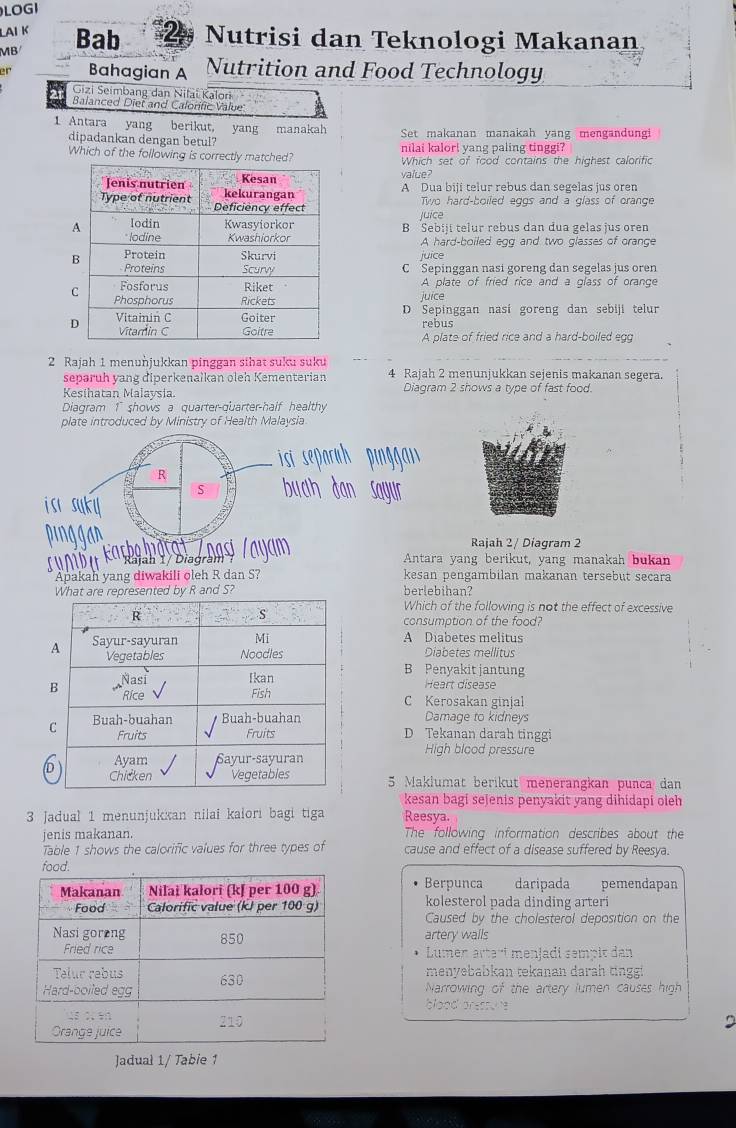 LOGI
LAI K
MB
er
Bab 2 Nutrisi dan Teknologi Makanan
Bahagian A Nutrition and Food Technology
2.1 Gizi Seimbang dan Nilai Kalori
Balanced Diet and Calorific Value
1 Antara yang berikut, yang manakah
dipadankan dengan betul?
Which of the following is correctly matched?
Jenis nutrien Kesan kekurangan
Type of nutrient Deficiency effect
A Iodin Kwasyiorkor
Iodine Kwashiorkor
B Protein Skurvi
Proteins Scurvy
C Fosforus Riket
Phosphorus Rickets
D Vitamin C Goiter
Vitamin C Goitre
2 Rajah 1 menunjukkan pinggan sihat suku suku
separuh yang diperkenalkan oleh Kementerian
Kesihatan Malaysia.
Diagram 1 shows a quarter-quarter-half healthy
plate introduced by Ministry of Health Malaysia.
R
S
isi separuh pinggan
buah dan sayur
isi suku
pinggan
sumber karbohidrat / nasi / ayam
Rajah 1/ Diagram 1
Apakah yang diwakili oleh R dan S?
What are represented by R and S?
R S
A Sayur-sayuran Mi
Vegetables Noodles
B Nasi Ikan
Rice Fish
C Buah-buahan Buah-buahan
Fruits Fruits
D Ayam Sayur-sayuran
Chicken Vegetables
3 Jadual 1 menunjukkan nilai kalori bagi tiga
jenis makanan.
Table 1 shows the calorific values for three types of
food.
Makanan Nilai kalori (kJ per 100 g)
Food Calorific value (kJ per 100 g)
Nasi goreng 850
Fried rice
Telur rebus 630
Hard-boiled egg
Jus oren 210
Orange juice
Jadual 1/ Table 1
Set makanan manakah yang mengandungi
nilai kalori yang paling tinggi?
Which set of food contains the highest calorific
value?
A Dua biji telur rebus dan segelas jus oren
Two hard-boiled eggs and a glass of orange
juice
B Sebiji telur rebus dan dua gelas jus oren
A hard-boiled egg and two glasses of orange
juice
C Sepinggan nasi goreng dan segelas jus oren
A plate of fried rice and a glass of orange
juice
D Sepinggan nasi goreng dan sebiji telur
rebus
A plate of fried rice and a hard-boiled egg
4 Rajah 2 menunjukkan sejenis makanan segera.
Diagram 2 shows a type of fast food.
Rajah 2/ Diagram 2
Antara yang berikut, yang manakah bukan
kesan pengambilan makanan tersebut secara
berlebihan?
Which of the following is not the effect of excessive
consumption of the food?
A Diabetes melitus
Diabetes mellitus
B Penyakit jantung
Heart disease
C Kerosakan ginjal
Damage to kidneys
D Tekanan darah tinggi
High blood pressure
5 Maklumat berikut menerangkan punca dan
kesan bagi sejenis penyakit yang dihidapi oleh
Reesya.
The following information describes about the
cause and effect of a disease suffered by Reesya.
• Berpunca daripada pemendapan
kolesterol pada dinding arteri
Caused by the cholesterol deposition on the
artery walls
• Lumen arteri menjadi sempit dan
menyebabkan tekanan darah tinggi
Narrowing of the artery lumen causes high
blood pressure